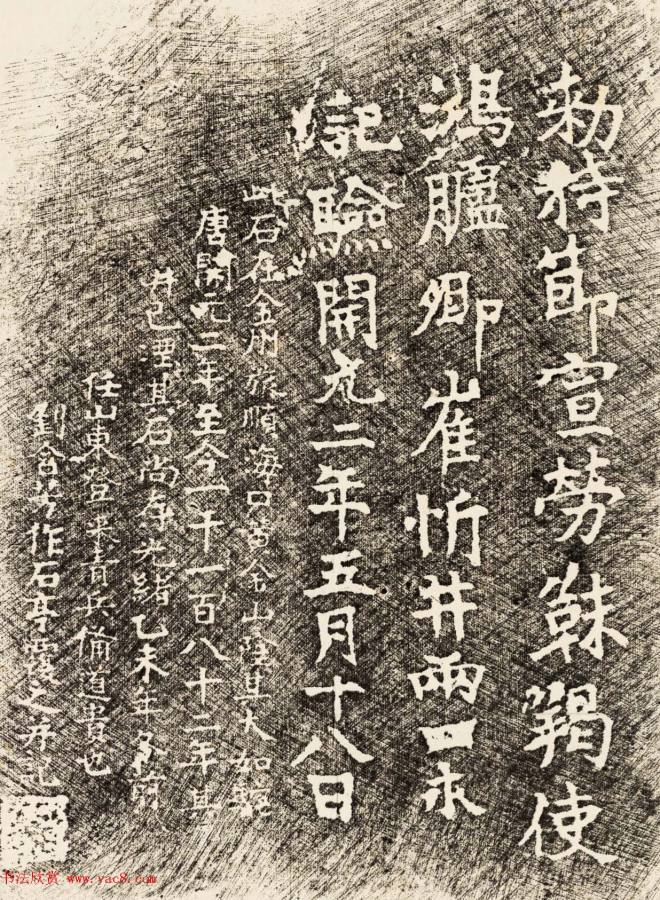 勑持節宣勞靺羯使
鴻臚卿崔忻井兩口永
記驗開元二年五月十八日
此石在金州旅順海口黃金山陰其大如駝
唐開元二年至今一千一百八十二年其
井已湮其石尚存光緒乙未年冬前
任山東登萊青兵備道貴池
劉含芳作石亭覆之并記
书法欣赏 www.yac8.com